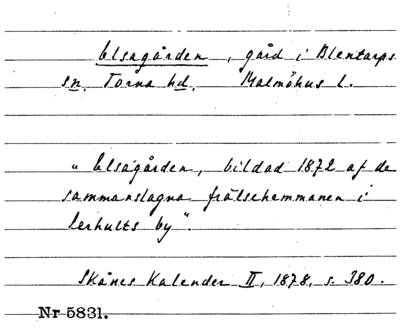 Elsagården, gård i Blentarps
sn. Torna hd. Malmöhus l.
„ Elsagården, bildad 1872 af de
sammanslagna frälsehemmanen i
Lerhults by".
Skånes Kalender II, 1878, s. 380.
Nr 5831.